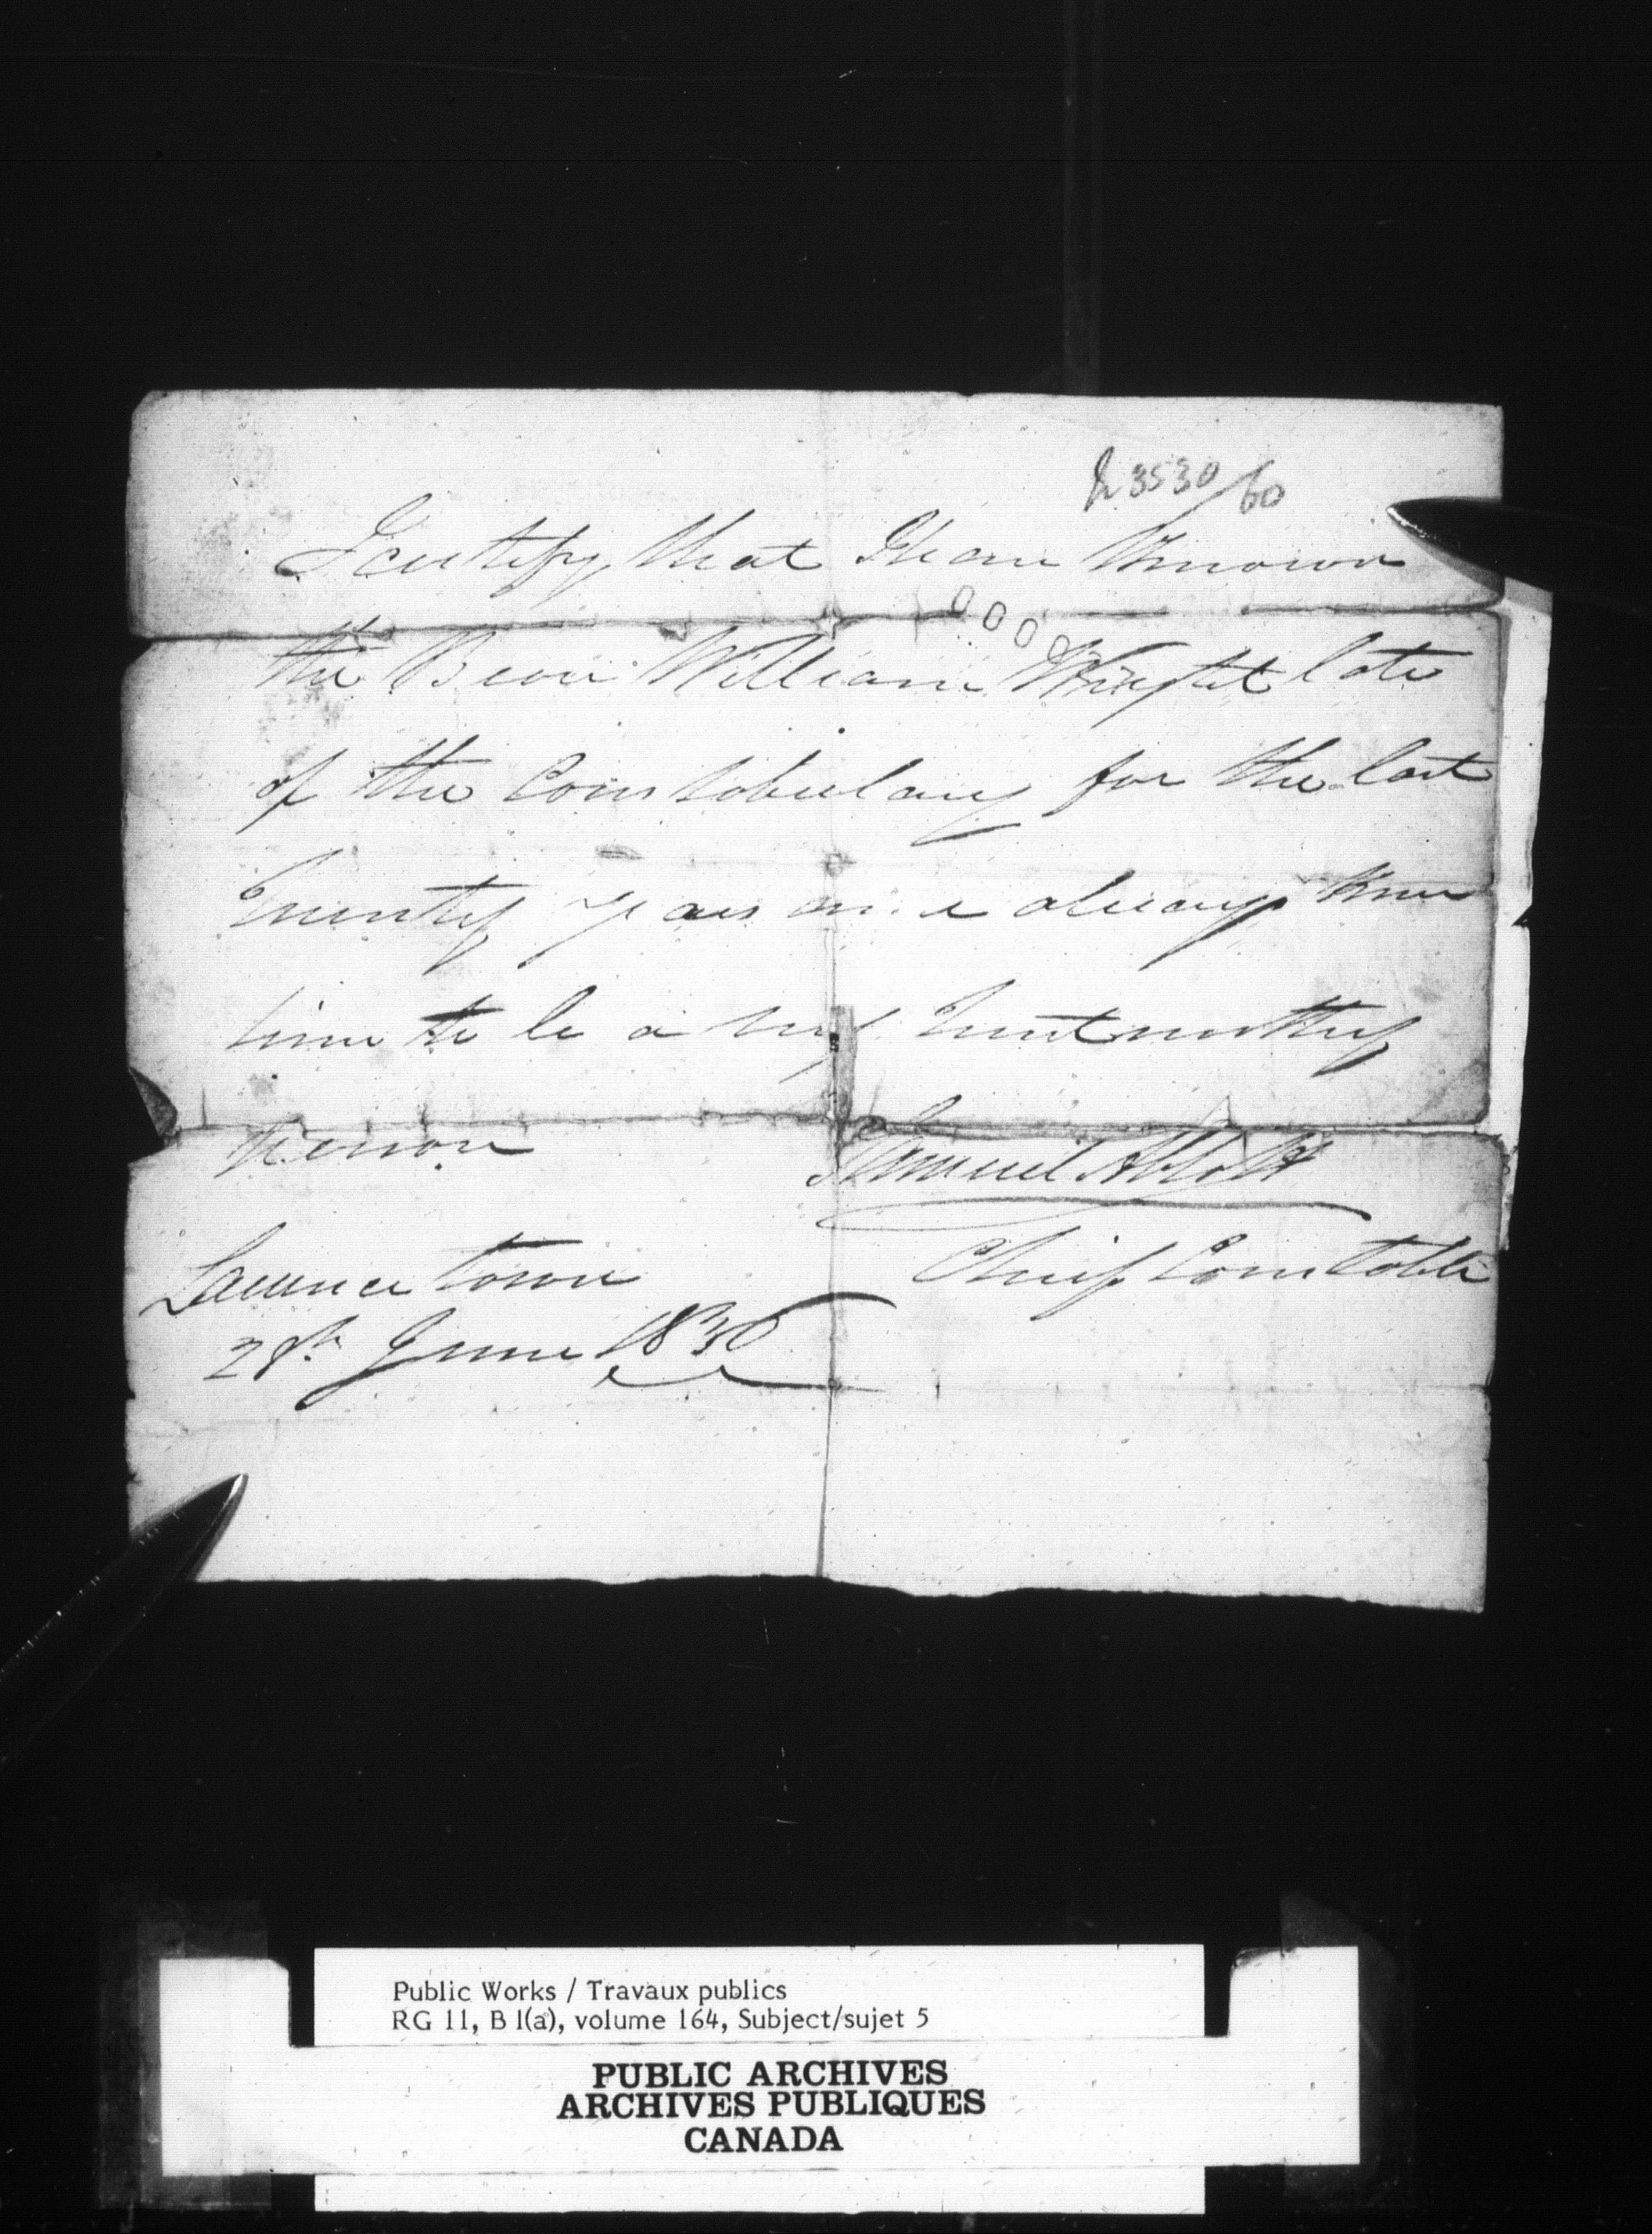 3530/60
I certify that I have known
the Bearer William Wright late
of the Constabulary for the last
twenty years and always knew
him to be a very trustworthy
Person
Samuel Abbott
Chief Constable
Lawrencetown
28th June 1836
Public Works / Travaux publics
RG 11, B 1(a), volume 164, Subject/sujet 5
PUBLIC ARCHIVES
ARCHIVES PUBLIQUES
CANADA